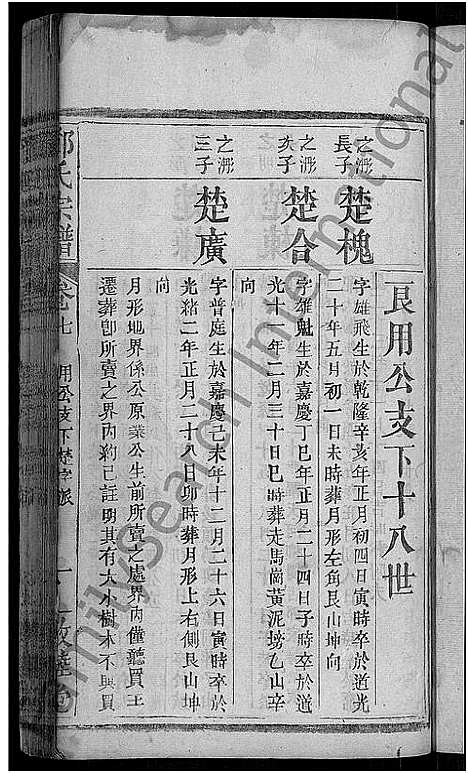 良用公支下十八世
之瀰長子
楚槐
字雄飛生於乾隆辛亥年正月初四日寅時卒於道光
二十年五月初一日未時葬月形左角艮山坤向
之瀰次子
楚合
字雄魁生於嘉慶丁巳年正月二十四日子時卒於道
光十一年二月三十日巳時葬走馬崗黃泥塝乙山辛
向
之瀰三子
楚廣
字普庭生於嘉慶己未年十二月二十六日寅時卒於
光緒二年正月二十八日卯時葬月形上右側艮山坤
向
月形地界係公原業公生前所賣之處界內僅聽買主
遷葬卽所賣之界內約已註明其有大小樹木不與買
氏宗譜
卷七
用公支下楚字派
FamilySearch International